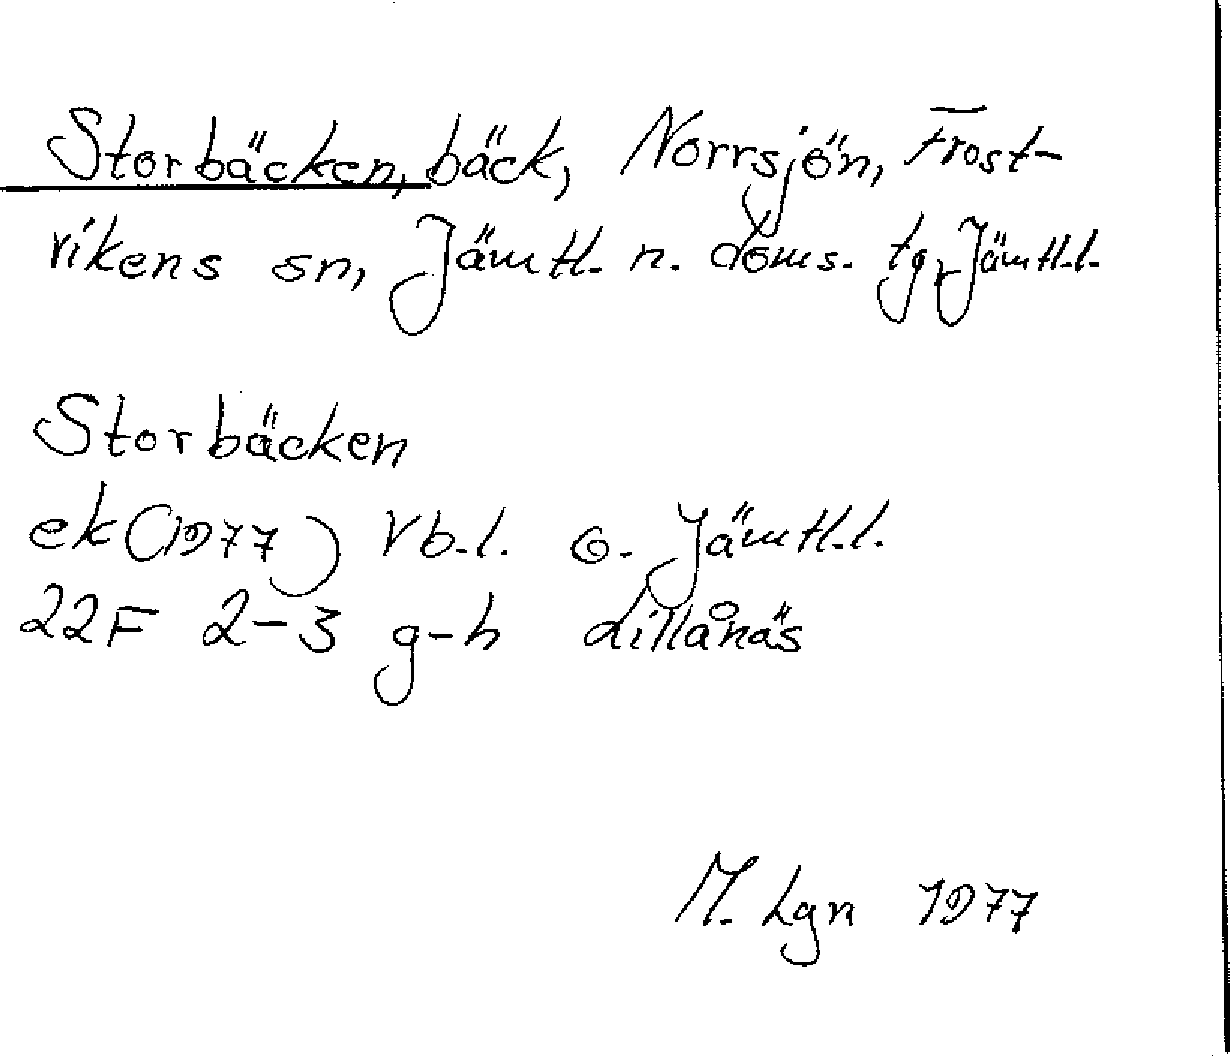 Storbäcken, bäck, Norrsjön, Frost-
vikens sn, Jämtl. n. doms. tg, Jämtl.l.
Storbäcken
ek (1977) Vb.l. o. Jämtl.l.
22F 2-3 g-h Lillånäs
M. Lgn 1977